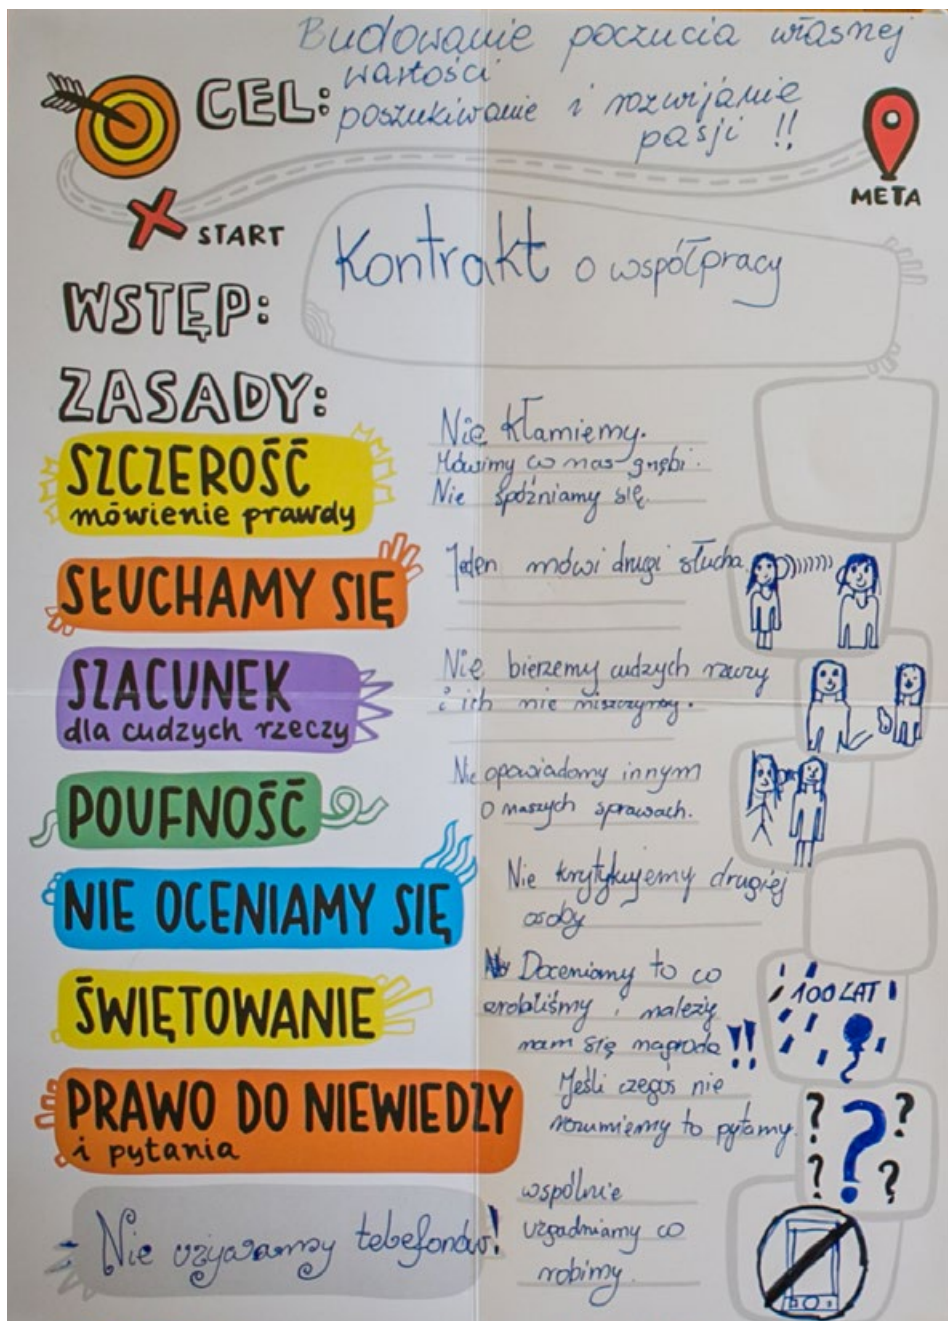 Budowanie poczucia własnej
CEL: wartości
poszukiwanie i rozwijanie
pasji !!
META
START
Kontrakt o współpracy
WSTĘP:
ZASADY:
SZCZEROŚĆ
mówienie prawdy
Nie kłamiemy.
Mówimy co nas gnębi.
Nie spóźniamy się.
SŁUCHAMY SIĘ
Jeden mówi drugi słucha
SZACUNEK
dla cudzych rzeczy
Nie bierzemy cudzych rzeczy
i ich nie niszczymy.
POUFNOŚĆ
Nie opowiadamy innym
o naszych sprawach.
NIE OCENIAMY SIĘ
Nie krytykujemy drugiej
osoby
ŚWIĘTOWANIE
Doceniamy to co
zrobiliśmy i należy
nam się nagroda !!
100 LAT
PRAWO DO NIEWIEDZY
i pytania
Jeśli czegoś nie
rozumiemy to pytamy.
? ? ? ? ?
Nie używamy telefonów!
wspólnie
uzgadniamy co
robimy.